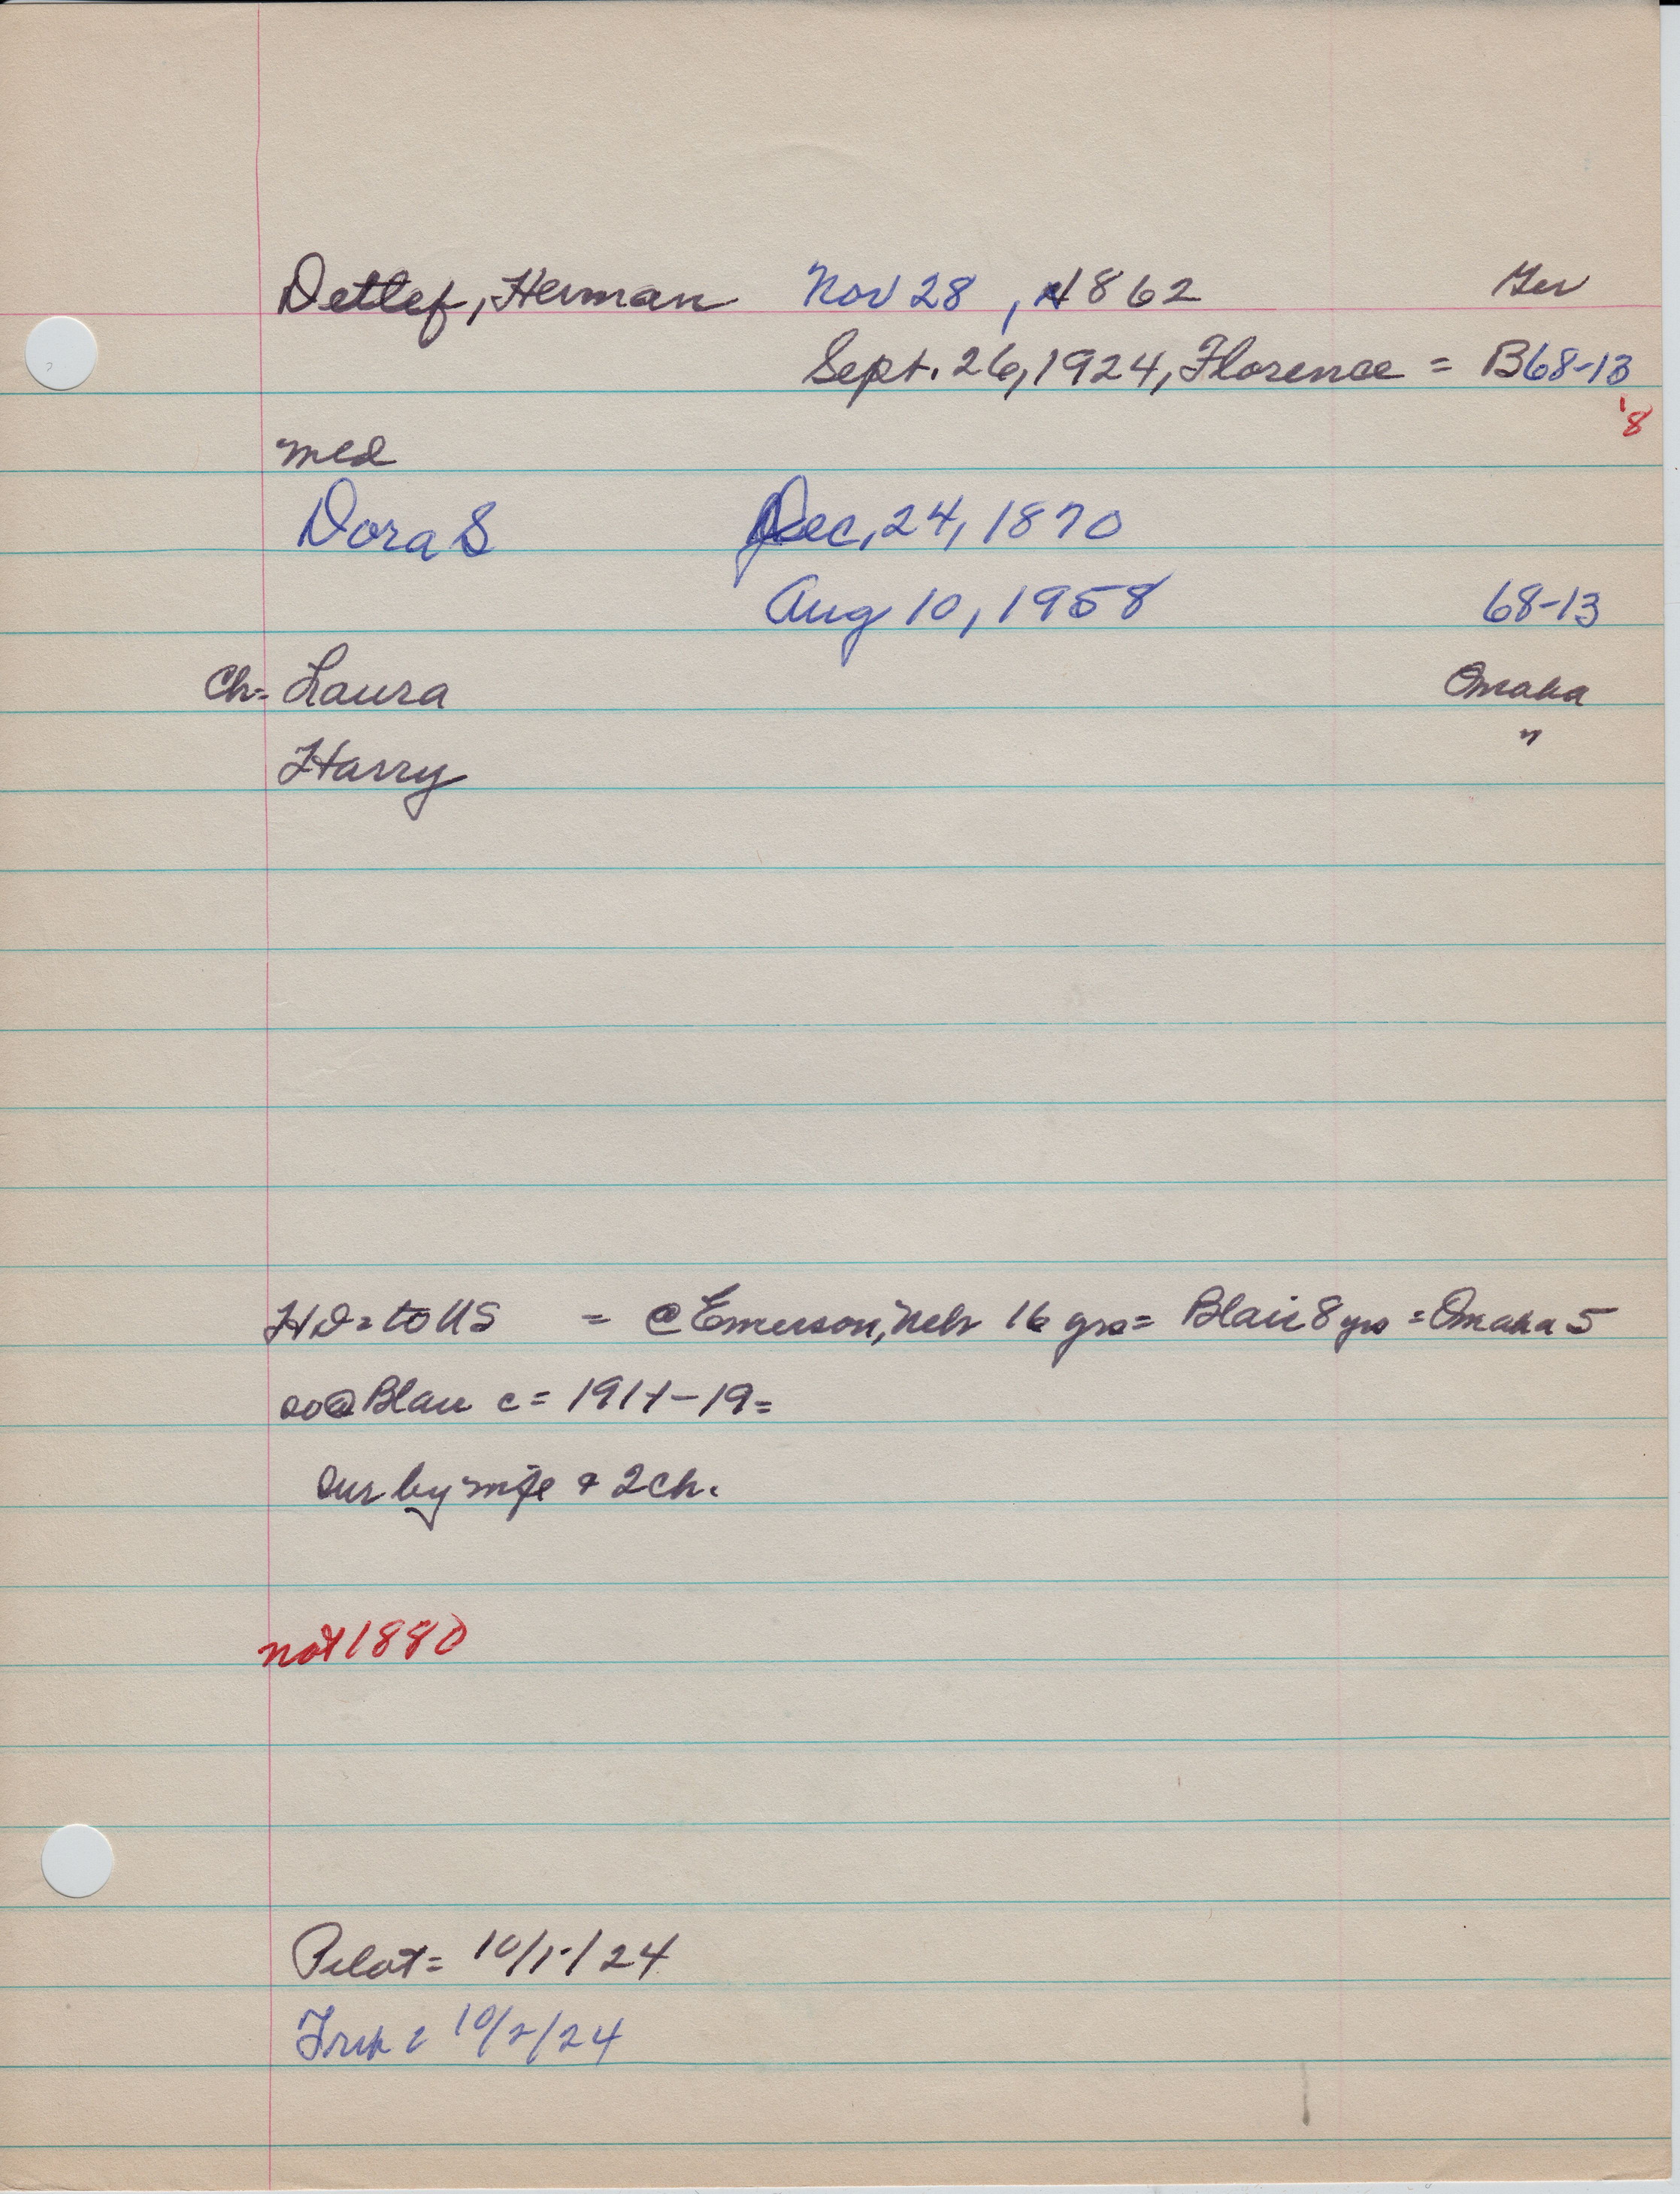 Detlef, Herman Nov 28, 1862 Ger
Sept. 26, 1924, Florence = B68-13
'8
med
Dora S Dec, 24, 1870
Aug 10, 1958 68-13
Ch= Laura Omaha
Harry "
HD= to US = @ Emerson, Neb 16 yrs= Blair 8 yrs = Omaha 5
@ Blair c = 1911-19=
Sur by wife & 2 ch.
not 1880
Pilot= 10/1/24
10/2/24